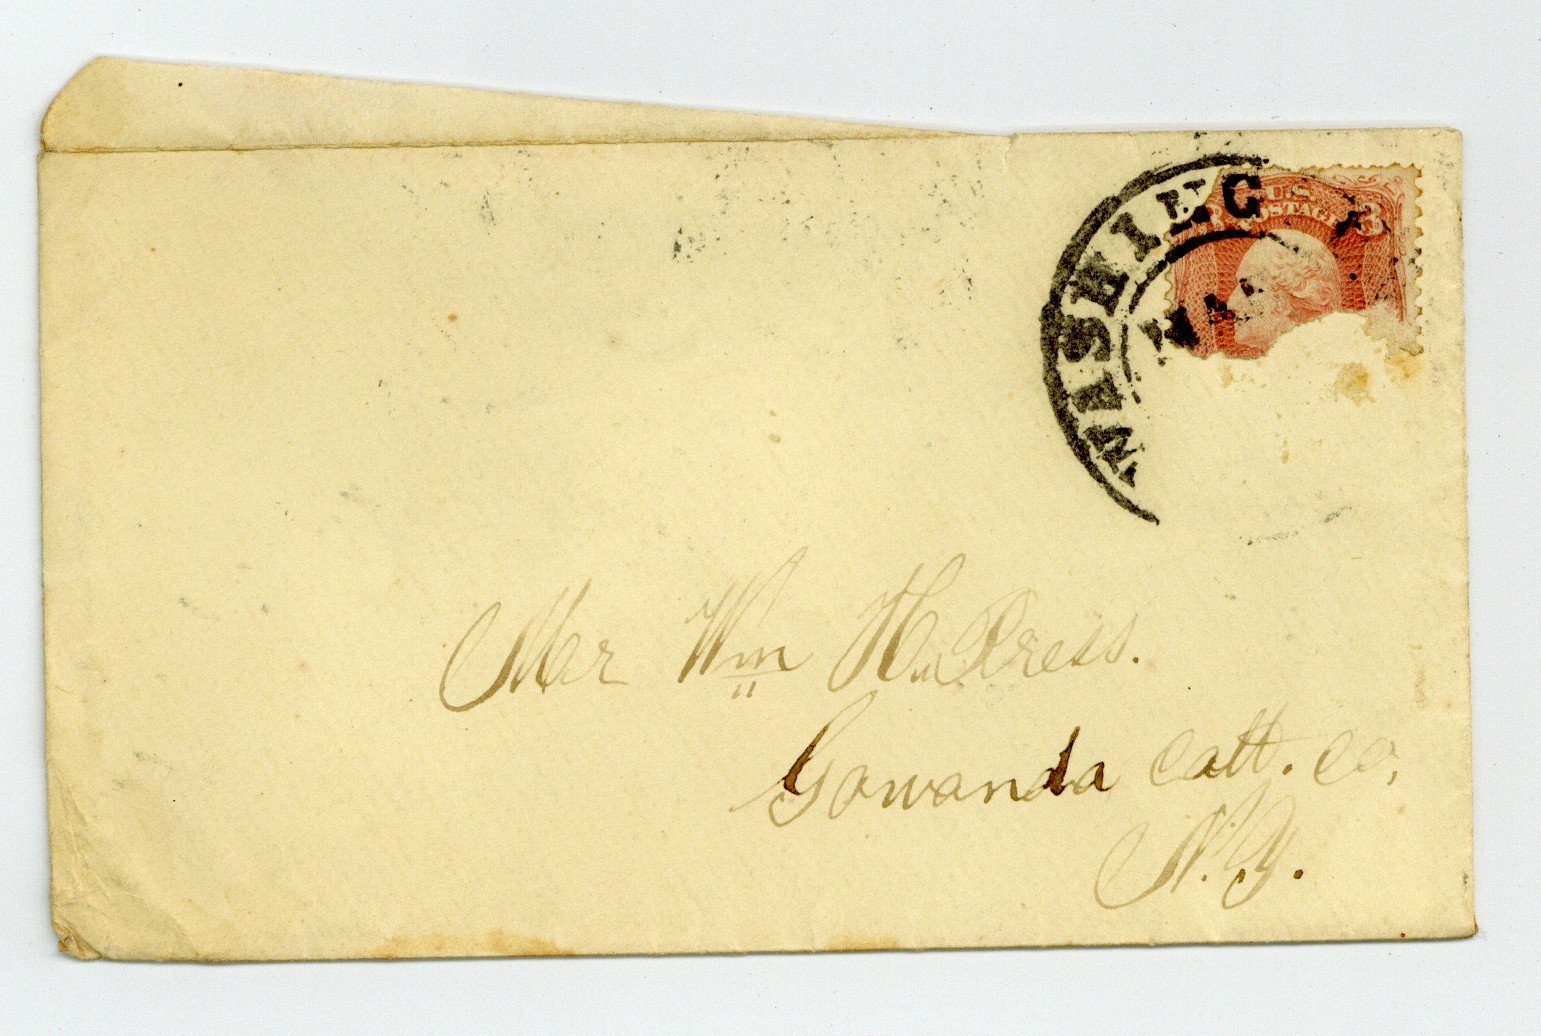 WASHING
U.S.
POSTAGE
3
Mr Wm H. Press.
Gowanda Catt. Co,
N.Y.